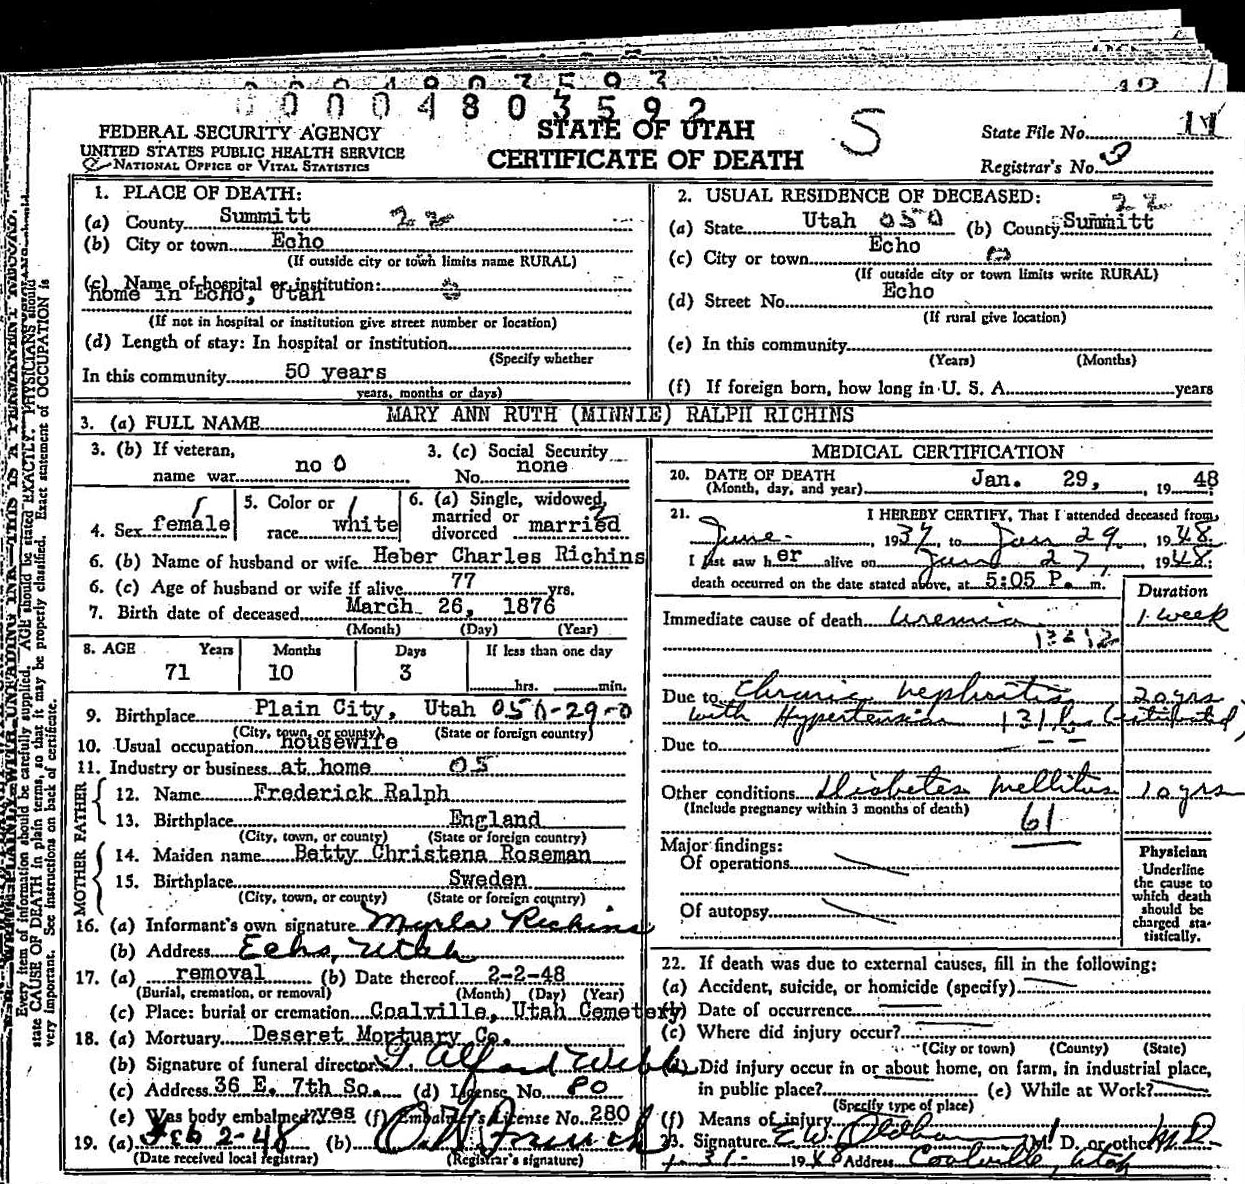 0000 4803592
FEDERAL SECURITY AGENCY
UNITED STATES PUBLIC HEALTH SERVICE
NATIONAL OFFICE OF VITAL STATISTICS
STATE OF UTAH
CERTIFICATE OF DEATH
S
State File No. 14
Registrar's No. 3
1. PLACE OF DEATH:
(a) County Summitt 22
(b) City or town Echo
(If outside city or town limits name RURAL)
(c) Name of hospital or institution:
home in Echo, Utah
(If not in hospital or institution give street number or location)
(d) Length of stay: In hospital or institution
(Specify whether
In this community 50 years
years, months or days)
2. USUAL RESIDENCE OF DECEASED:
22
(a) State Utah 050 (b) County Summitt
(c) City or town Echo
(If outside city or town limits write RURAL)
(d) Street No. Echo
(If rural give location)
(e) In this community
(Years) (Months)
(f) If foreign born, how long in U. S. A. years
3. (a) FULL NAME MARY ANN RUTH (MINNIE) RALPH RICHINS
3. (b) If veteran,
name war no 0
3. (c) Social Security
No. none
4. Sex female
5. Color or
race white
6. (a) Single, widowed,
married or
divorced married
6. (b) Name of husband or wife Heber Charles Richins
6. (c) Age of husband or wife if alive 77 yrs.
7. Birth date of deceased March 26, 1876
(Month) (Day) (Year)
8. AGE Years Months Days If less than one day
71 10 3 hrs. min.
9. Birthplace Plain City, Utah 050-29-0
(City, town, or county) (State or foreign country)
10. Usual occupation housewife
11. Industry or business at home 05
FATHER
12. Name Frederick Ralph
13. Birthplace England
(City, town, or county) (State or foreign country)
MOTHER
14. Maiden name Betty Christena Roseman
15. Birthplace Sweden
(City, town, or county) (State or foreign country)
16. (a) Informant's own signature Myrla Richins
(b) Address Echo, Utah
17. (a) removal (b) Date thereof 2-2-48
(Burial, cremation, or removal) (Month) (Day) (Year)
(c) Place: burial or cremation Coalville, Utah Cemetery
18. (a) Mortuary Deseret Mortuary Co.
(b) Signature of funeral director Alford Webb
(c) Address 36 E. 7th So. (d) License No. 80
(e) Was body embalmed? yes (f) Embalmer's License No. 280
19. (a) Feb 2-48 (b)
(Date received local registrar) (Registrar's signature)
MEDICAL CERTIFICATION
20. DATE OF DEATH
(Month, day, and year) Jan. 29, , 19 48
21. I HEREBY CERTIFY, That I attended deceased from
June , 1937, to Jan 29, 1948.
I last saw her alive on 27, 1948.
death occurred on the date stated above, at 5:05 P. m.
Duration
Immediate cause of death Uremia 1 week
Due to Chronic nephritis 20 yrs
with Hypertension
Due to
Other conditions Diabetes Mellitus 10 yrs
(Include pregnancy within 3 months of death)
61
Major findings:
Of operations
Of autopsy
Physician
Underline
the cause to
which death
should be
charged sta-
tistically.
22. If death was due to external causes, fill in the following:
(a) Accident, suicide, or homicide (specify)
(b) Date of occurrence
(c) Where did injury occur?
(City or town) (County) (State)
(d) Did injury occur in or about home, on farm, in industrial place,
in public place? (e) While at Work?
(Specify type of place)
(f) Means of injury
23. Signature E W Oldham (M. D. or other) M.D.
1-31- 1948 Address Coalville, Utah
Every item of information should be carefully supplied. AGE should be stated EXACTLY. PHYSICIANS should
state CAUSE OF DEATH in plain terms, so that it may be properly classified. Exact statement of OCCUPATION is
very important. See instructions on back of certificate.